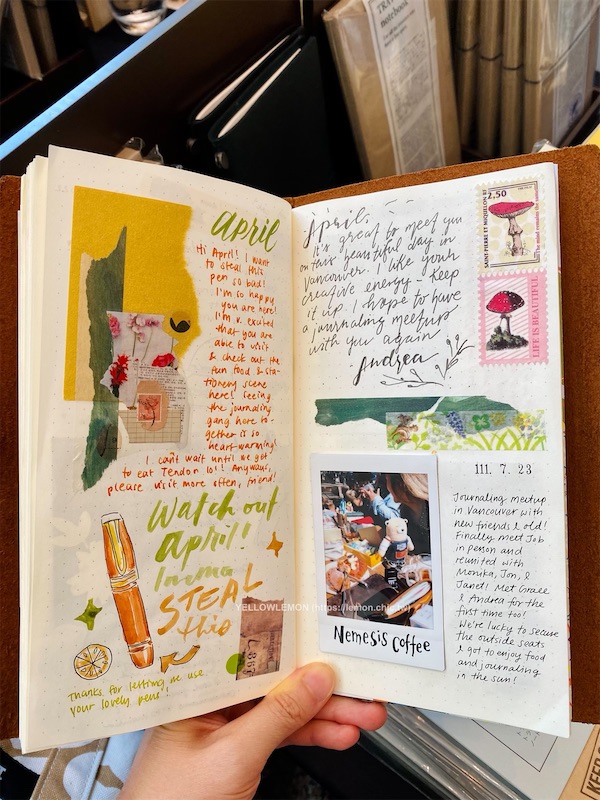 TRA
notebook
april
Hi April! I want
to steal this
pen so bad!
I'm so happy
you are here!
I'm v. excited
that you are
able to visit
& check out the
fun food & sta-
tionery scene
here! Seeing
the journaling
gang here to-
gether is so
heart-warming!
I can't wait until we get
to eat Tendon lol! Anyways,
please visit more often, friend!
Watch out
april!
Imma
STEAL
this
Thanks for letting me use
your lovely pens!
April,
It's great to meet you
on this beautiful day in
Vancouver. I like your
creative energy - keep
it up. I hope to have
a journaling meetup
with you again
Andrea
2,50
SAINT-PIERRE ET MIQUELON
LIFE IS BEAUTIFUL
111. 7. 23
Journaling meetup
in Vancouver with
new friends & old!
Finally meet Job
in person and
reunited with
Monika, Jon, &
Janet! Met Grace
& Andrea for the
first time too!
We're lucky to secure
the outside seats
& got to enjoy food
and journaling
in the sun!
Nemesis Coffee
YELLOWLEMON (https://lemon.chic.tw)
KEEP